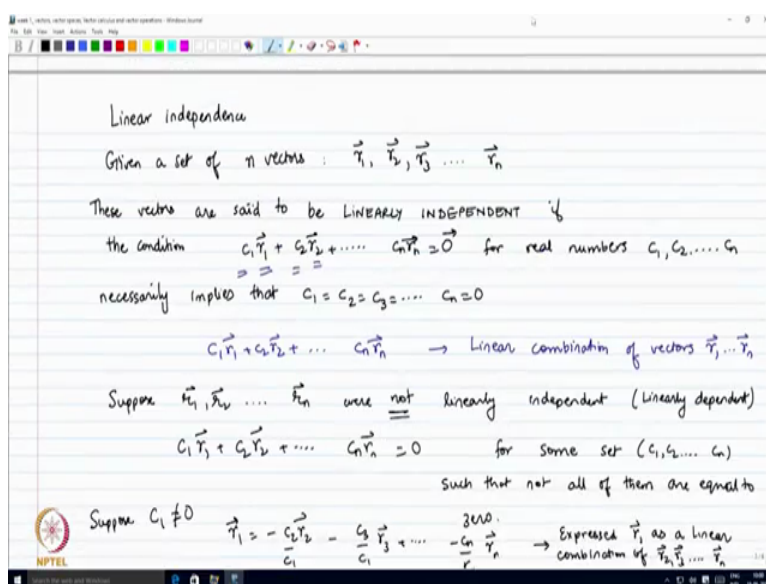 week 1_ vectors, vector spaces, Vector calculus and vector operations - Windows Journal
File Edit View Insert Actions Tools Help
B I
Linear independence
Given a set of n vectors : r⃗₁, r⃗₂, r⃗₃ .... r⃗ₙ
These vectors are said to be LINEARLY INDEPENDENT if
the condition c₁r⃗₁ + c₂r⃗₂ + ..... cₙr⃗ₙ = 0⃗ for real numbers c₁, c₂.... cₙ
necessarily implies that c₁ = c₂ = c₃ = .... cₙ = 0
c₁r⃗₁ + c₂r⃗₂ + ... cₙr⃗ₙ → Linear combination of vectors r⃗₁...r⃗ₙ
Suppose r⃗₁, r⃗₂ .... r⃗ₙ were not linearly independent (Linearly dependent)
c₁r⃗₁ + c₂r⃗₂ + .... cₙr⃗ₙ = 0 for some set (c₁, c₂.... cₙ)
such that not all of them are equal to
zero.
Suppose c₁ ≠ 0 r⃗₁ = -c₂r⃗₂/c₁ - c₃/c₁ r⃗₃ + .... -cₙ/c r⃗ₙ → Expressed r⃗₁ as a linear
combination of r⃗₂, r⃗₃ .... r⃗ₙ
NPTEL
Search the web and Windows
ENG